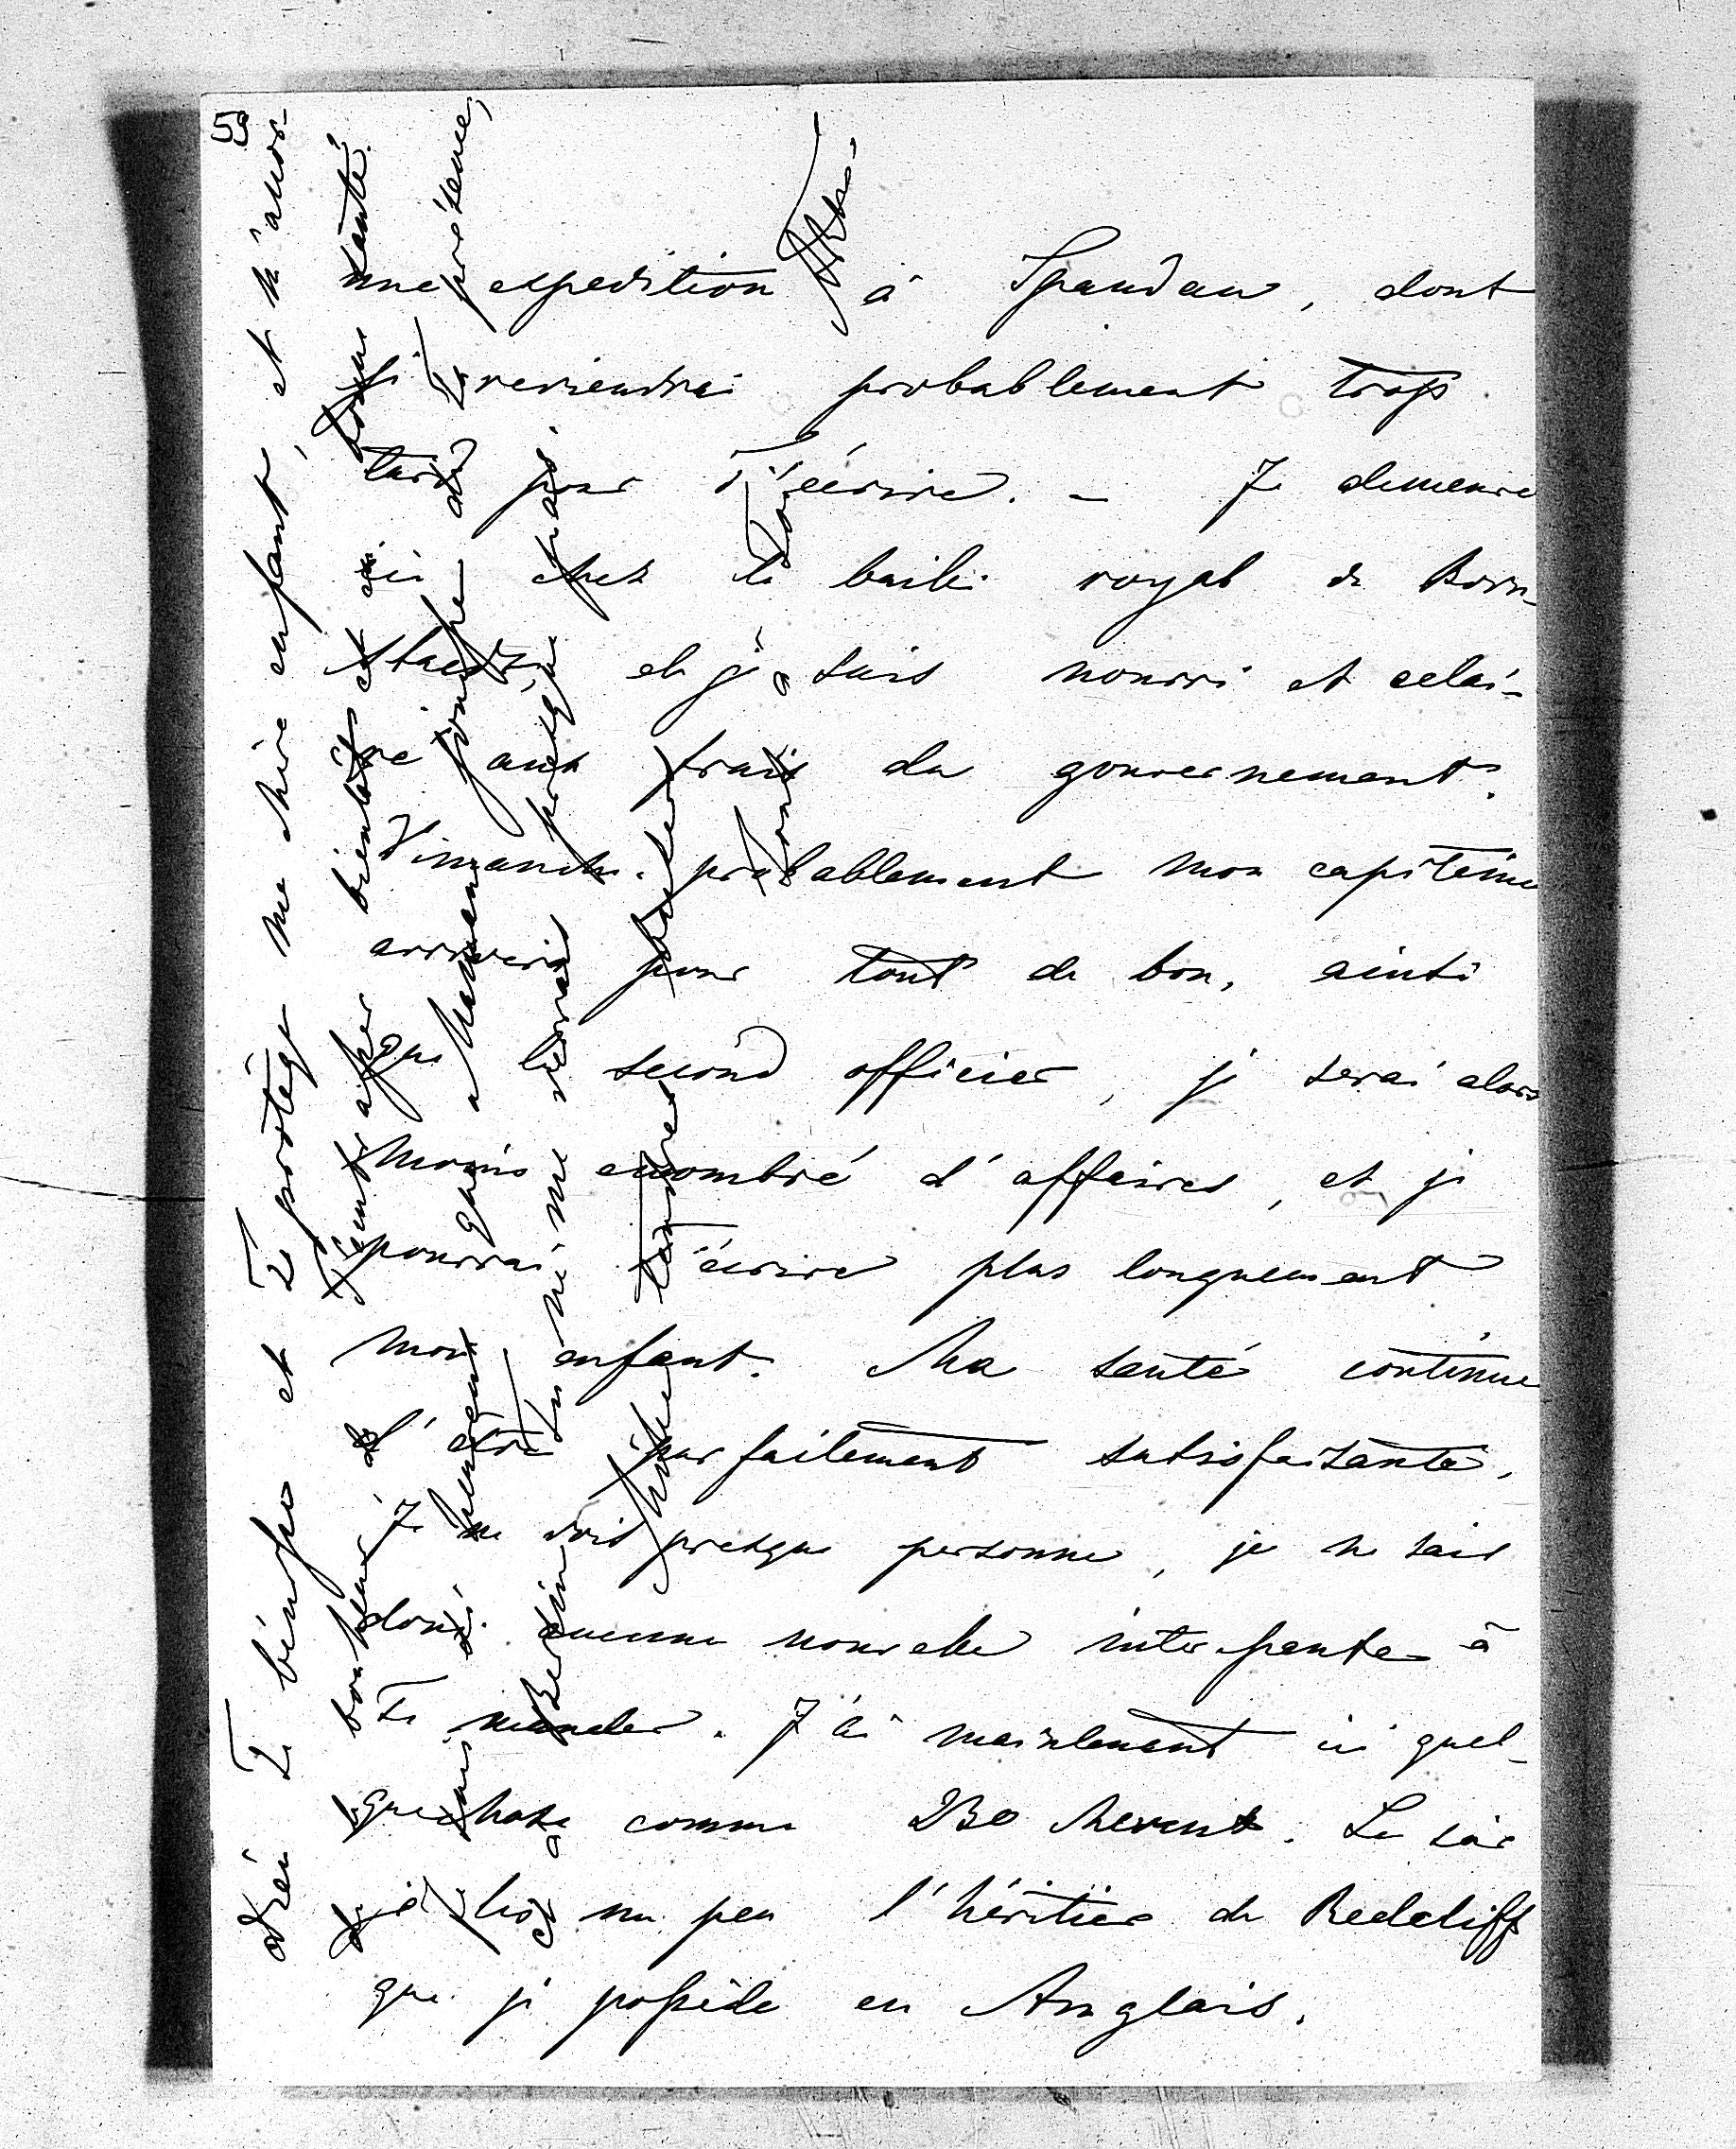 59
une expedition à Spandau, dont
je reviendrai probablement trop
tard pour T'écrire. – Je demeure
ici chez le baili royal de Born-
staedt, et je suis nourri et eclai-
ré aux frais du gouvernement.
Dimanche probablement mon capitaine
arrivera pour tout de bon, ainsi
que le second officier, je serai alors
moins encombré d'affaires, et je
pourrai T'écrire plus longuement
mon enfant. Ma santé continue
d'être parfaitement satisfaisante.
Je ne vois presque personne, je ne sais
donc aucune nouvelle interessante à
Te mander. J'ai maintenant ici quel-
que chose comme 230 chevaux. Le soir
je lis un peu l'héritier de Redcliff
que je possède en Anglais.
Dieu Te bénisse et Te protège ma chère enfant, et m'accor-
de le bonheur de T'embrasser bientôt et en bonne santé.
Je suis si heureux que Maman jouisse de Ta présence,
et à Berlin Tu ne me verrais presque jamais
Adieu
Ton